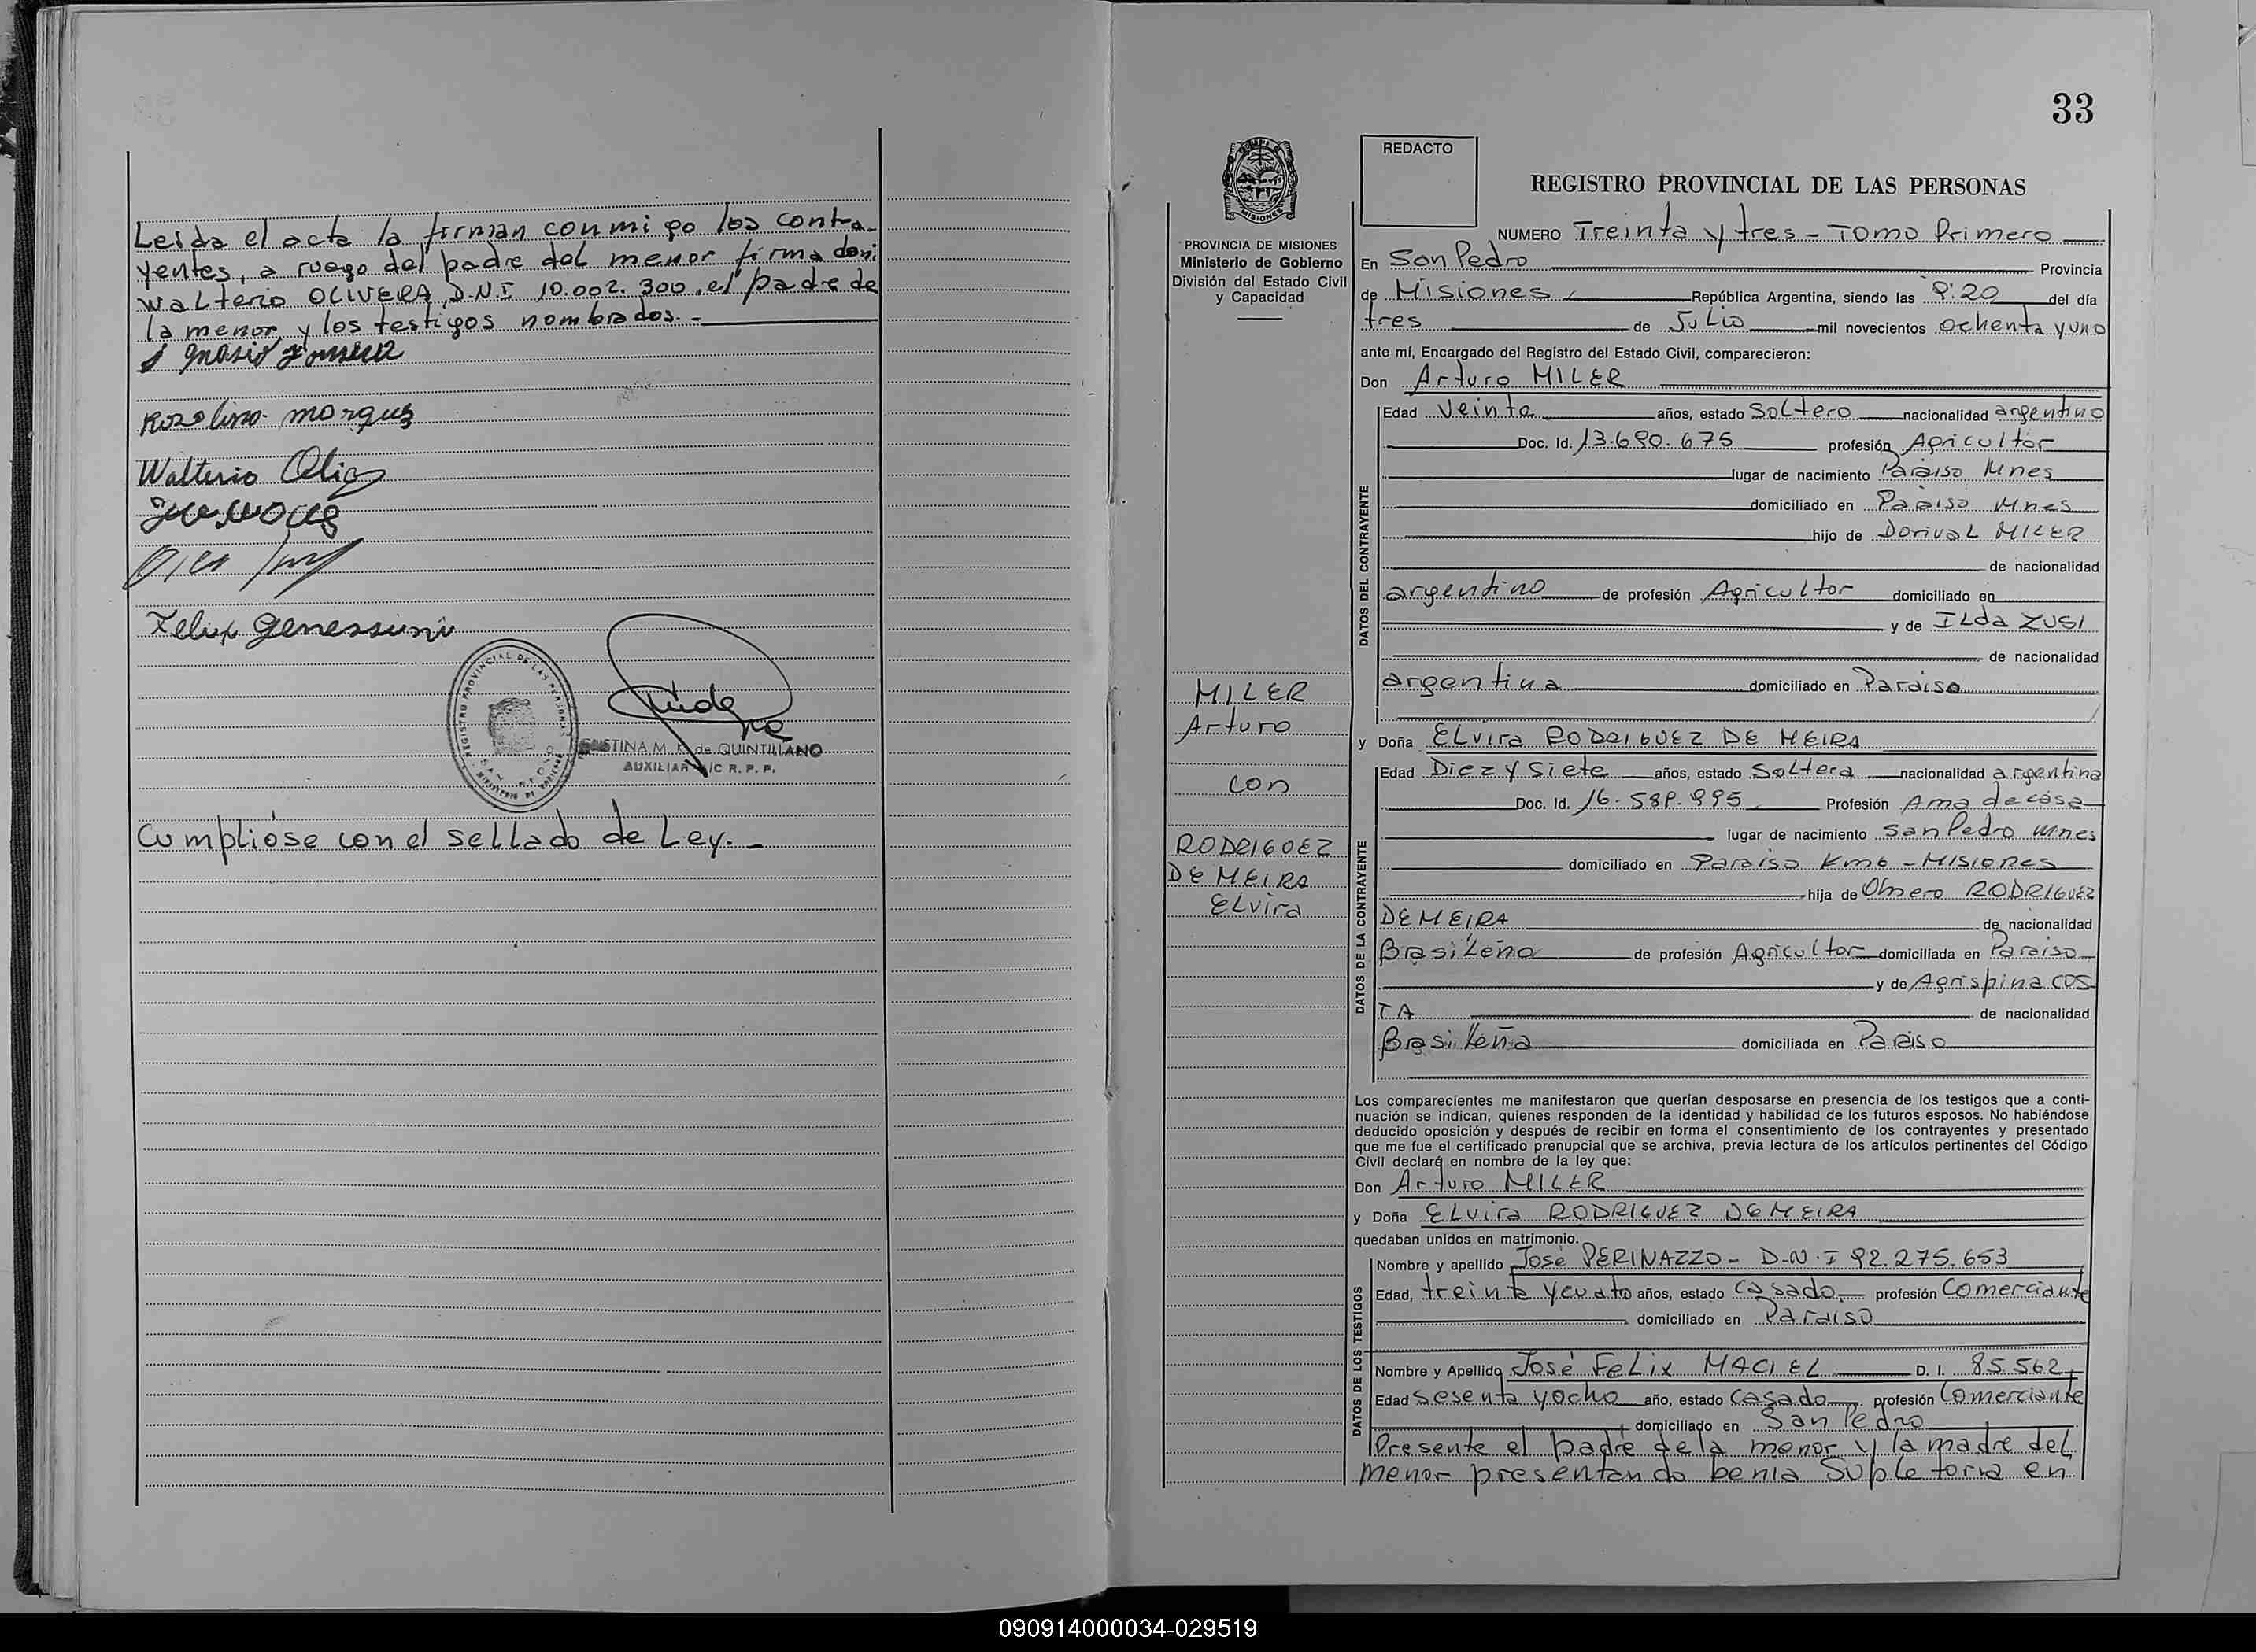 Leida el acta la firman conmigo los contra-
yentes, a ruego del padre del menor firma don:
Walterio OLIVERA, D.N.I 10.002.300, el padre de
la menor y los testigos nombrados.-
Rosalino
Walterio
Felix
REGISTRO PROVINCIAL DE LAS PERSONAS
SAN PEDRO
CRISTINA M. K. de QUINTILIANO
AUXILIAR A/C R. P. P.
Cumplióse con el sellado de Ley.-
33
PROVINCIA DE MISIONES
Ministerio de Gobierno
División del Estado Civil
y Capacidad
MILER
Arturo
con
RODRIGUEZ
DE MEIRA
ELvira
REDACTO
REGISTRO PROVINCIAL DE LAS PERSONAS
NUMERO Treinta y tres - TOMO Primero
En San Pedro Provincia
de Misiones República Argentina, siendo las 9:20 del día
tres de Julio mil novecientos ochenta y uno
ante mí, Encargado del Registro del Estado Civil, comparecieron:
Don Arturo MILER
DATOS DEL CONTRAYENTE
Edad Veinte años, estado Soltero nacionalidad argentino
Doc. Id. 13.690.675 profesión Agricultor
lugar de nacimiento Paraiso Mnes
domiciliado en Paraiso Mnes
hijo de DorivaL MILER
de nacionalidad
argentino de profesión Agricultor domiciliado en
y de ILda ZUSI
de nacionalidad
argentina domiciliado en Paraiso
y Doña ELvira RODRIGUEZ DE MEIRA
DATOS DE LA CONTRAYENTE
Edad Diez y Siete años, estado Soltera nacionalidad argentina
Doc. Id. 16.589.995 Profesión Ama de casa
lugar de nacimiento San Pedro Mnes
domiciliado en Paraiso Km6 - Misiones
hija de RODRIGUEZ
DE MEIRA de nacionalidad
BrasiLeño de profesión Agricultor domiciliada en Paraiso
y de Agrispina COS-
TA de nacionalidad
BrasiLeña domiciliada en Paraiso
Los comparecientes me manifestaron que querían desposarse en presencia de los testigos que a conti-
nuación se indican, quienes responden de la identidad y habilidad de los futuros esposos. No habiéndose
deducido oposición y después de recibir en forma el consentimiento de los contrayentes y presentado
que me fue el certificado prenupcial que se archiva, previa lectura de los artículos pertinentes del Código
Civil declaré en nombre de la ley que:
Don Arturo MILER
y Doña ELvira RODRIGUEZ DE MEIRA
quedaban unidos en matrimonio.
DATOS DE LOS TESTIGOS
Nombre y apellido José PERINAZZO - D.N.I 92.275.653
Edad, treinta y cuatro años, estado casado profesión Comerciante
domiciliado en Paraiso
Nombre y Apellido José FeLix MACIEL D. I. 85.562
Edad Sesenta y ocho año, estado casado profesión Comerciante
domiciliado en San Pedro
Presente el padre de la menor y la madre del
menor presentando benia Supletoria en
090914000034-029519